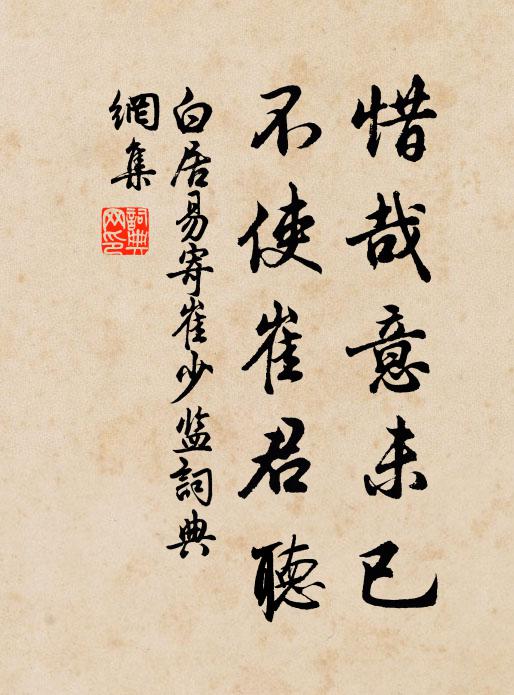 惜哉意未已
不使崔君聽
白居易寄崔少監詞典
網集
詞典
网印